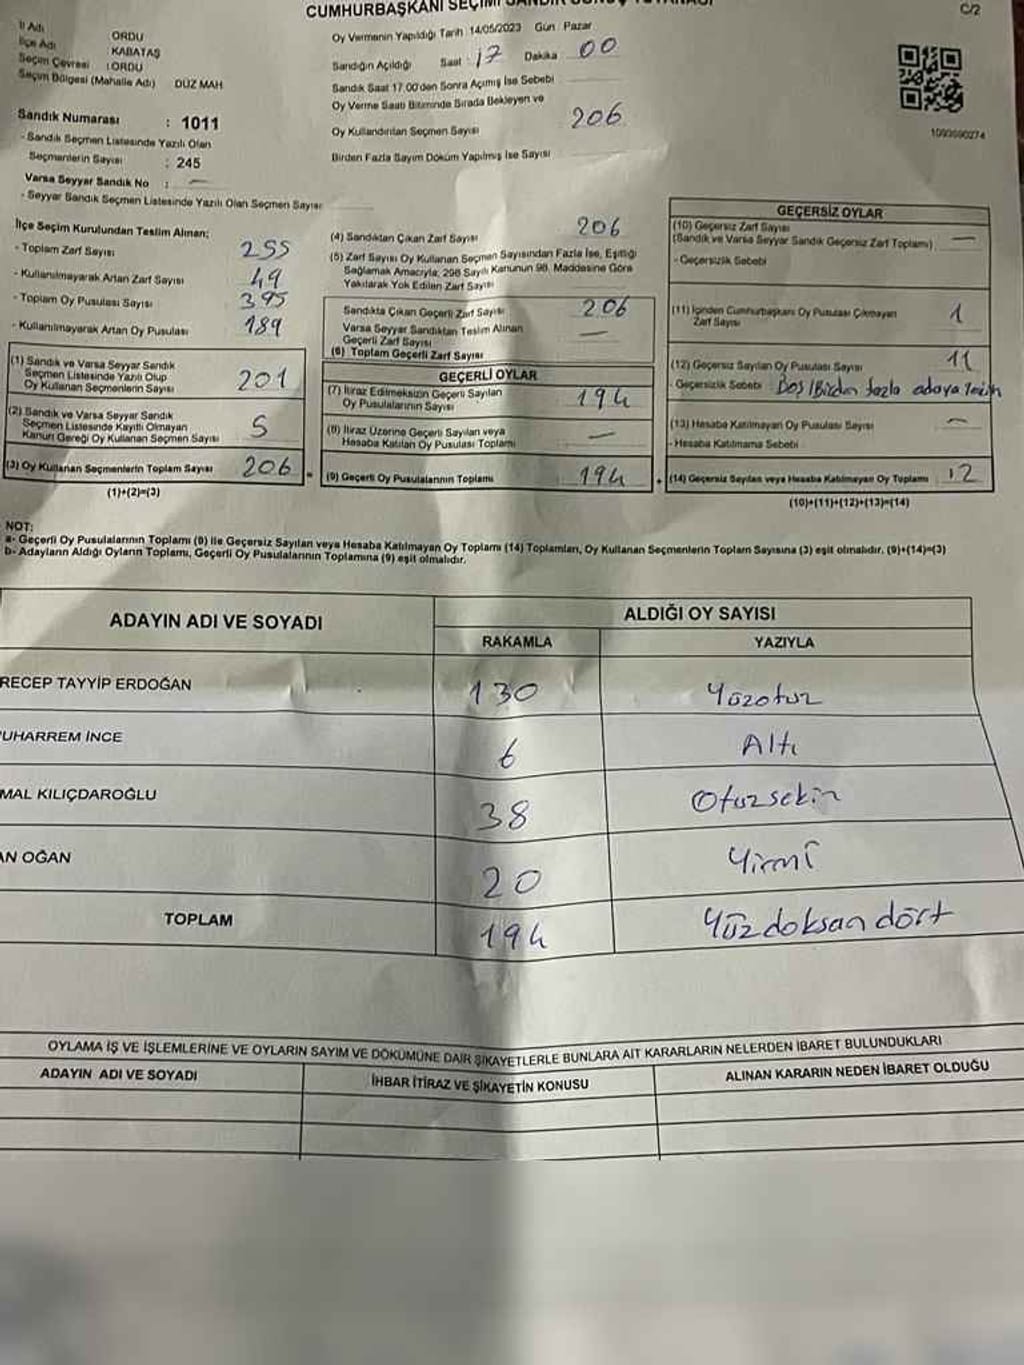 CUMHURBAŞKANI SEÇİMİ SANDIK SONUÇ TUTANAĞI
C/2
İl Adı ORDU
İlçe Adı KABATAŞ
Seçim Çevresi : ORDU
Seçim Bölgesi (Mahalle Adı) DÜZ MAH
Sandık Numarası : 1011
- Sandık Seçmen Listesinde Yazılı Olan
Seçmenlerin Sayısı : 245
Varsa Seyyar Sandık No : —
- Seyyar Sandık Seçmen Listesinde Yazılı Olan Seçmen Sayısı
Oy Vermenin Yapıldığı Tarih 14/05/2023 Gün : Pazar
Sandığın Açıldığı Saat : 17 Dakika 00
Sandık Saat 17.00'den Sonra Açılmış İse Sebebi
Oy Verme Saati Bitiminde Sırada Bekleyen ve
Oy Kullandırılan Seçmen Sayısı 206
Birden Fazla Sayım Döküm Yapılmış İse Sayısı
1093590274
İlçe Seçim Kurulundan Teslim Alınan;
- Toplam Zarf Sayısı 255
- Kullanılmayarak Artan Zarf Sayısı 49
- Toplam Oy Pusulası Sayısı 395
- Kullanılmayarak Artan Oy Pusulası 189
(1) Sandık ve Varsa Seyyar Sandık
Seçmen Listesinde Yazılı Olup
Oy Kullanan Seçmenlerin Sayısı 201
(2) Sandık ve Varsa Seyyar Sandık
Seçmen Listesinde Kayıtlı Olmayan
Kanun Gereği Oy Kullanan Seçmen Sayısı 5
(3) Oy Kullanan Seçmenlerin Toplam Sayısı 206
(1)+(2)=(3)
(4) Sandıktan Çıkan Zarf Sayısı 206
(5) Zarf Sayısı Oy Kullanan Seçmen Sayısından Fazla İse, Eşitliği
Sağlamak Amacıyla; 298 Sayılı Kanunun 98. Maddesine Göre
Yakılarak Yok Edilen Zarf Sayısı
Sandıkta Çıkan Geçerli Zarf Sayısı 206
Varsa Seyyar Sandıktan Teslim Alınan
Geçerli Zarf Sayısı —
(6) Toplam Geçerli Zarf Sayısı
GEÇERLİ OYLAR
(7) İtiraz Edilmeksizin Geçerli Sayılan
Oy Pusulalarının Sayısı 194
(8) İtiraz Üzerine Geçerli Sayılan veya
Hesaba Katılan Oy Pusulası Toplamı —
= (9) Geçerli Oy Pusulalarının Toplamı 194
GEÇERSİZ OYLAR
(10) Geçersiz Zarf Sayısı
(Sandık ve Varsa Seyyar Sandık Geçersiz Zarf Toplamı) —
- Geçersizlik Sebebi
(11) İçinden Cumhurbaşkanı Oy Pusulası Çıkmayan
Zarf Sayısı 1
(12) Geçersiz Sayılan Oy Pusulası Sayısı 11
- Geçersizlik Sebebi Boş/Birden fazla adaya
(13) Hesaba Katılmayan Oy Pusulası Sayısı —
- Hesaba Katılmama Sebebi
+ (14) Geçersiz Sayılan veya Hesaba Katılmayan Oy Toplamı 12
(10)+(11)+(12)+(13)=(14)
NOT:
a- Geçerli Oy Pusulalarının Toplamı (9) ile Geçersiz Sayılan veya Hesaba Katılmayan Oy Toplamı (14) Toplamları, Oy Kullanan Seçmenlerin Toplam Sayısına (3) eşit olmalıdır. (9)+(14)=(3)
b- Adayların Aldığı Oyların Toplamı, Geçerli Oy Pusulalarının Toplamına (9) eşit olmalıdır.
ADAYIN ADI VE SOYADI
ALDIĞI OY SAYISI
RAKAMLA YAZIYLA
RECEP TAYYİP ERDOĞAN 130 Yüzotuz
UHARREM İNCE 6 Altı
MAL KILIÇDAROĞLU 38 Otuzsekiz
AN OĞAN 20 Yirmi
TOPLAM 194 Yüzdoksandört
OYLAMA İŞ VE İŞLEMLERİNE VE OYLARIN SAYIM VE DÖKÜMÜNE DAİR ŞİKAYETLERLE BUNLARA AİT KARARLARIN NELERDEN İBARET BULUNDUKLARI
ADAYIN ADI VE SOYADI İHBAR İTİRAZ VE ŞİKAYETİN KONUSU ALINAN KARARIN NEDEN İBARET OLDUĞU